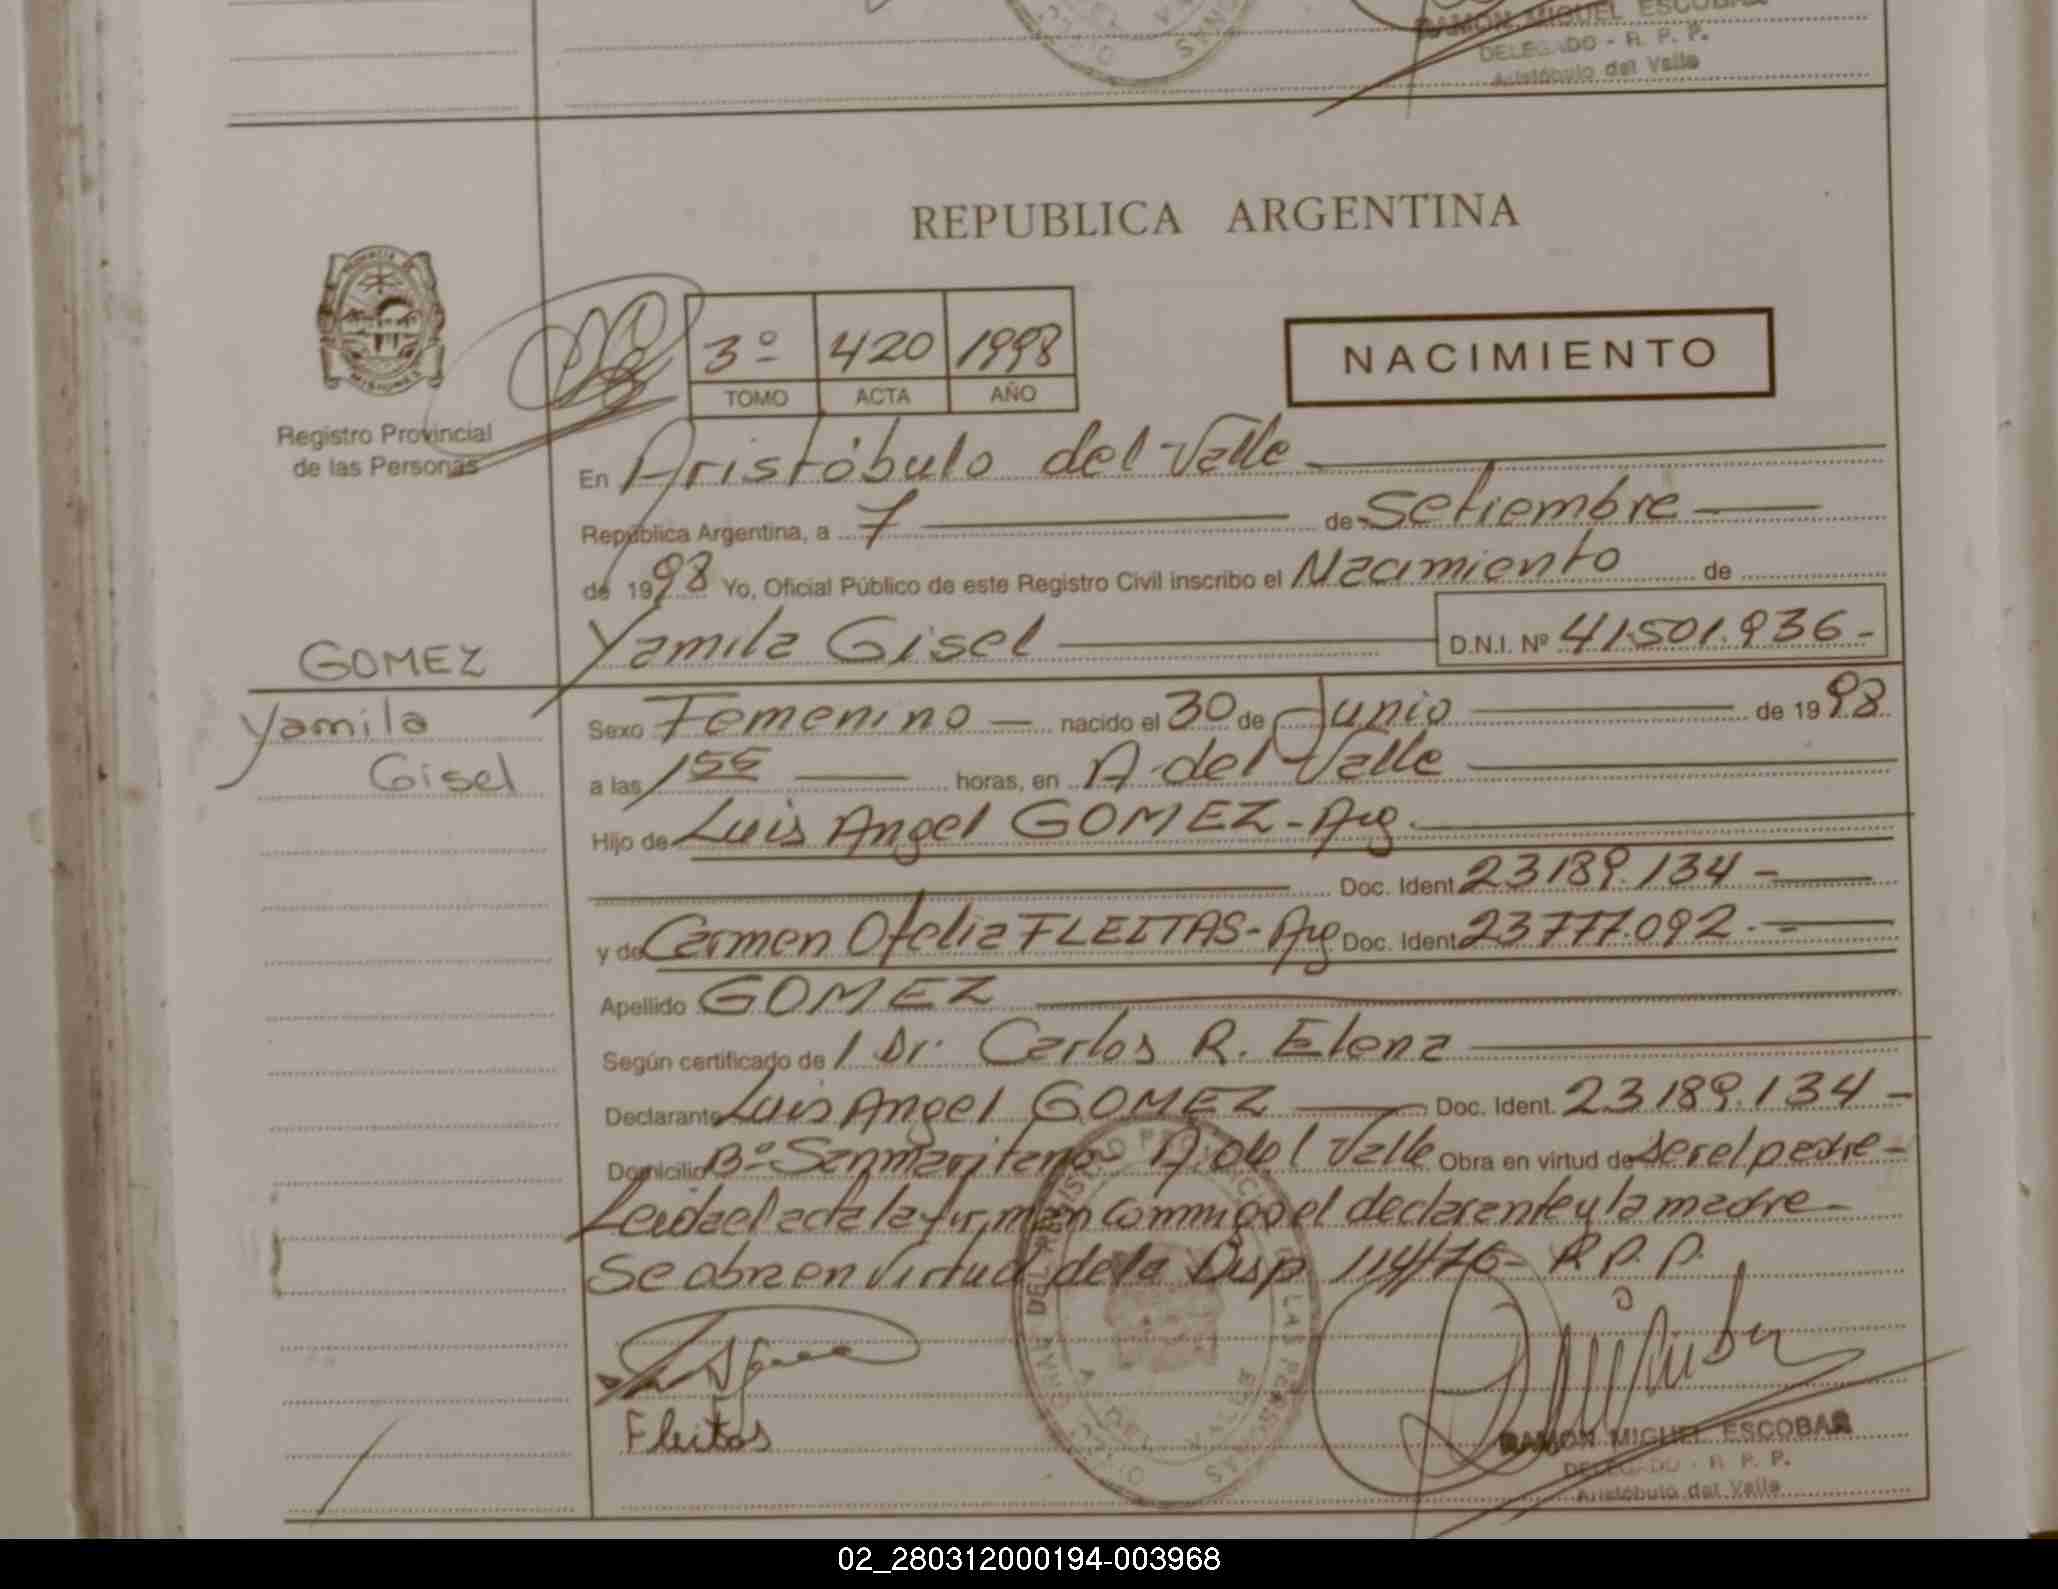 RAMON MIGUEL ESCOBAR
DELEGADO - R. P. P.
Aristóbulo del Valle
REPUBLICA ARGENTINA
PROVINCIA
MISIONES
Registro Provincial
de las Personas
3º 420 1998
TOMO ACTA AÑO
NACIMIENTO
En Aristóbulo del Valle
República Argentina, a 7 de Setiembre
de 1998 Yo, Oficial Público de este Registro Civil inscribo el Nacimiento de
Yamila Gisel D.N.I. Nº 41.501.936-
GOMEZ
Yamila
Gisel
Sexo Femenino nacido el 30 de Junio de 1998
a las 155 horas, en A. del Valle
Hijo de Luis Angel GOMEZ - Arg.
Doc. Ident 23189.134 -
y de Carmen Ofelia FLEITAS - Arg Doc. Ident 23777.092.-
Apellido GOMEZ
Según certificado de / Dr. Carlos R. Elena
Declarante Luis Angel GOMEZ Doc. Ident. 23189.134 -
Domicilio Bº Sanmaritano A. del Valle Obra en virtud de ser el padre -
Leida el acta la firman conmigo el declarante y la madre -
Se obra en virtud de la Disp 114/76 - R.P.P.
Fleitas
RAMON MIGUEL ESCOBAR
DELEGADO - R. P. P.
Aristóbulo del Valle
02_280312000194-003968